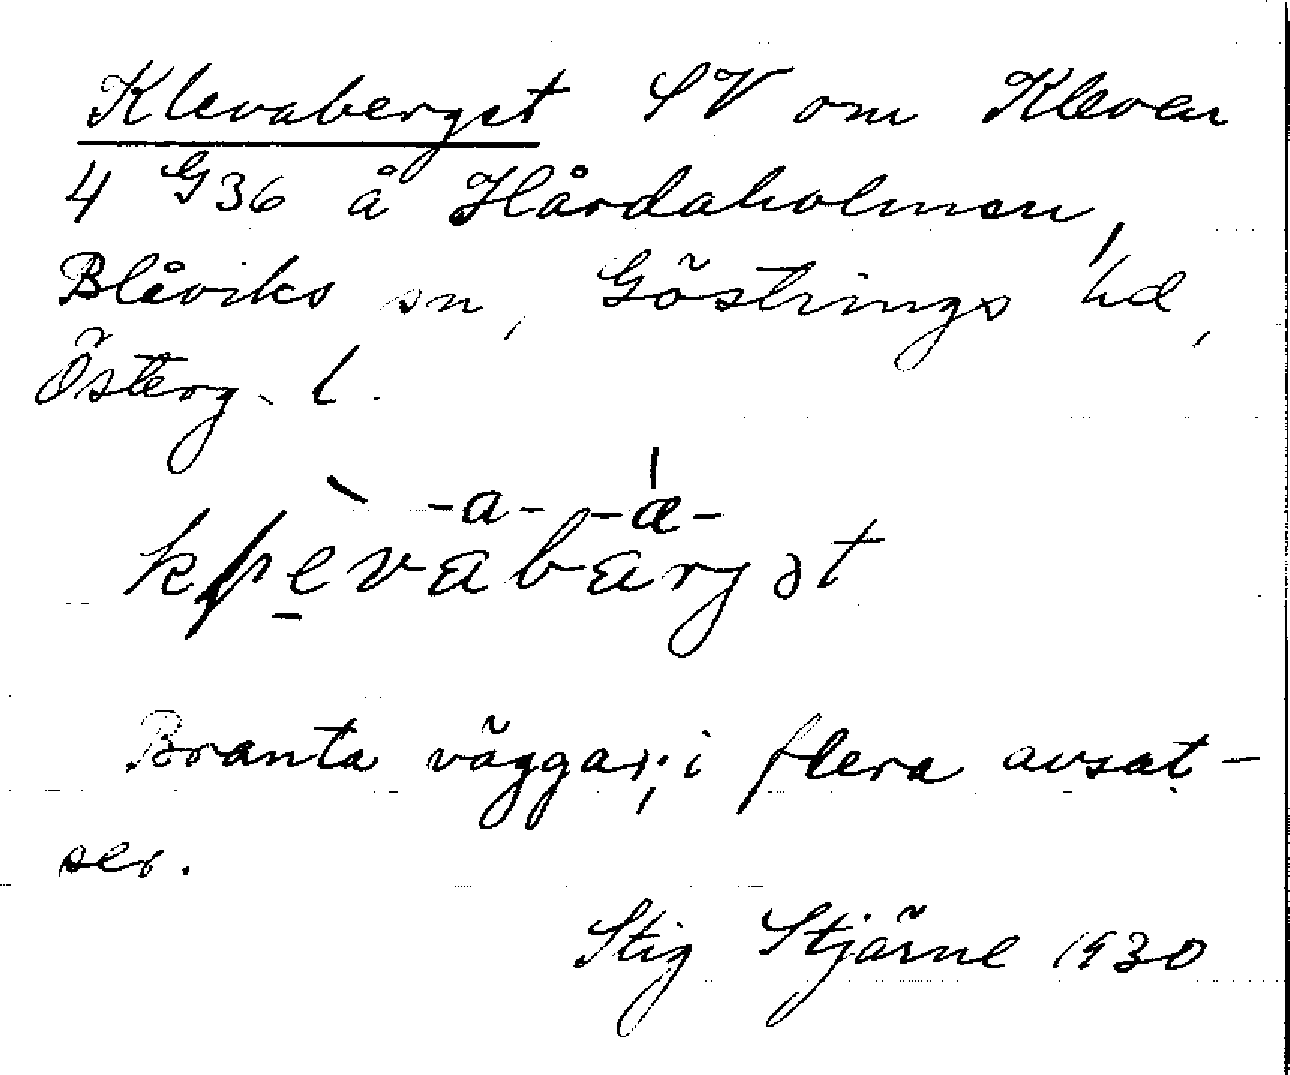 Klevaberget SV om Kleven
4 G36 å Hårdaholmen,
Blåviks sn, Göstrings hd,
Österg. l.
-a- -æ-
kḷèvabargət
Branta väggar; i flera avsat-
ser.
Stig Stjärne 1930